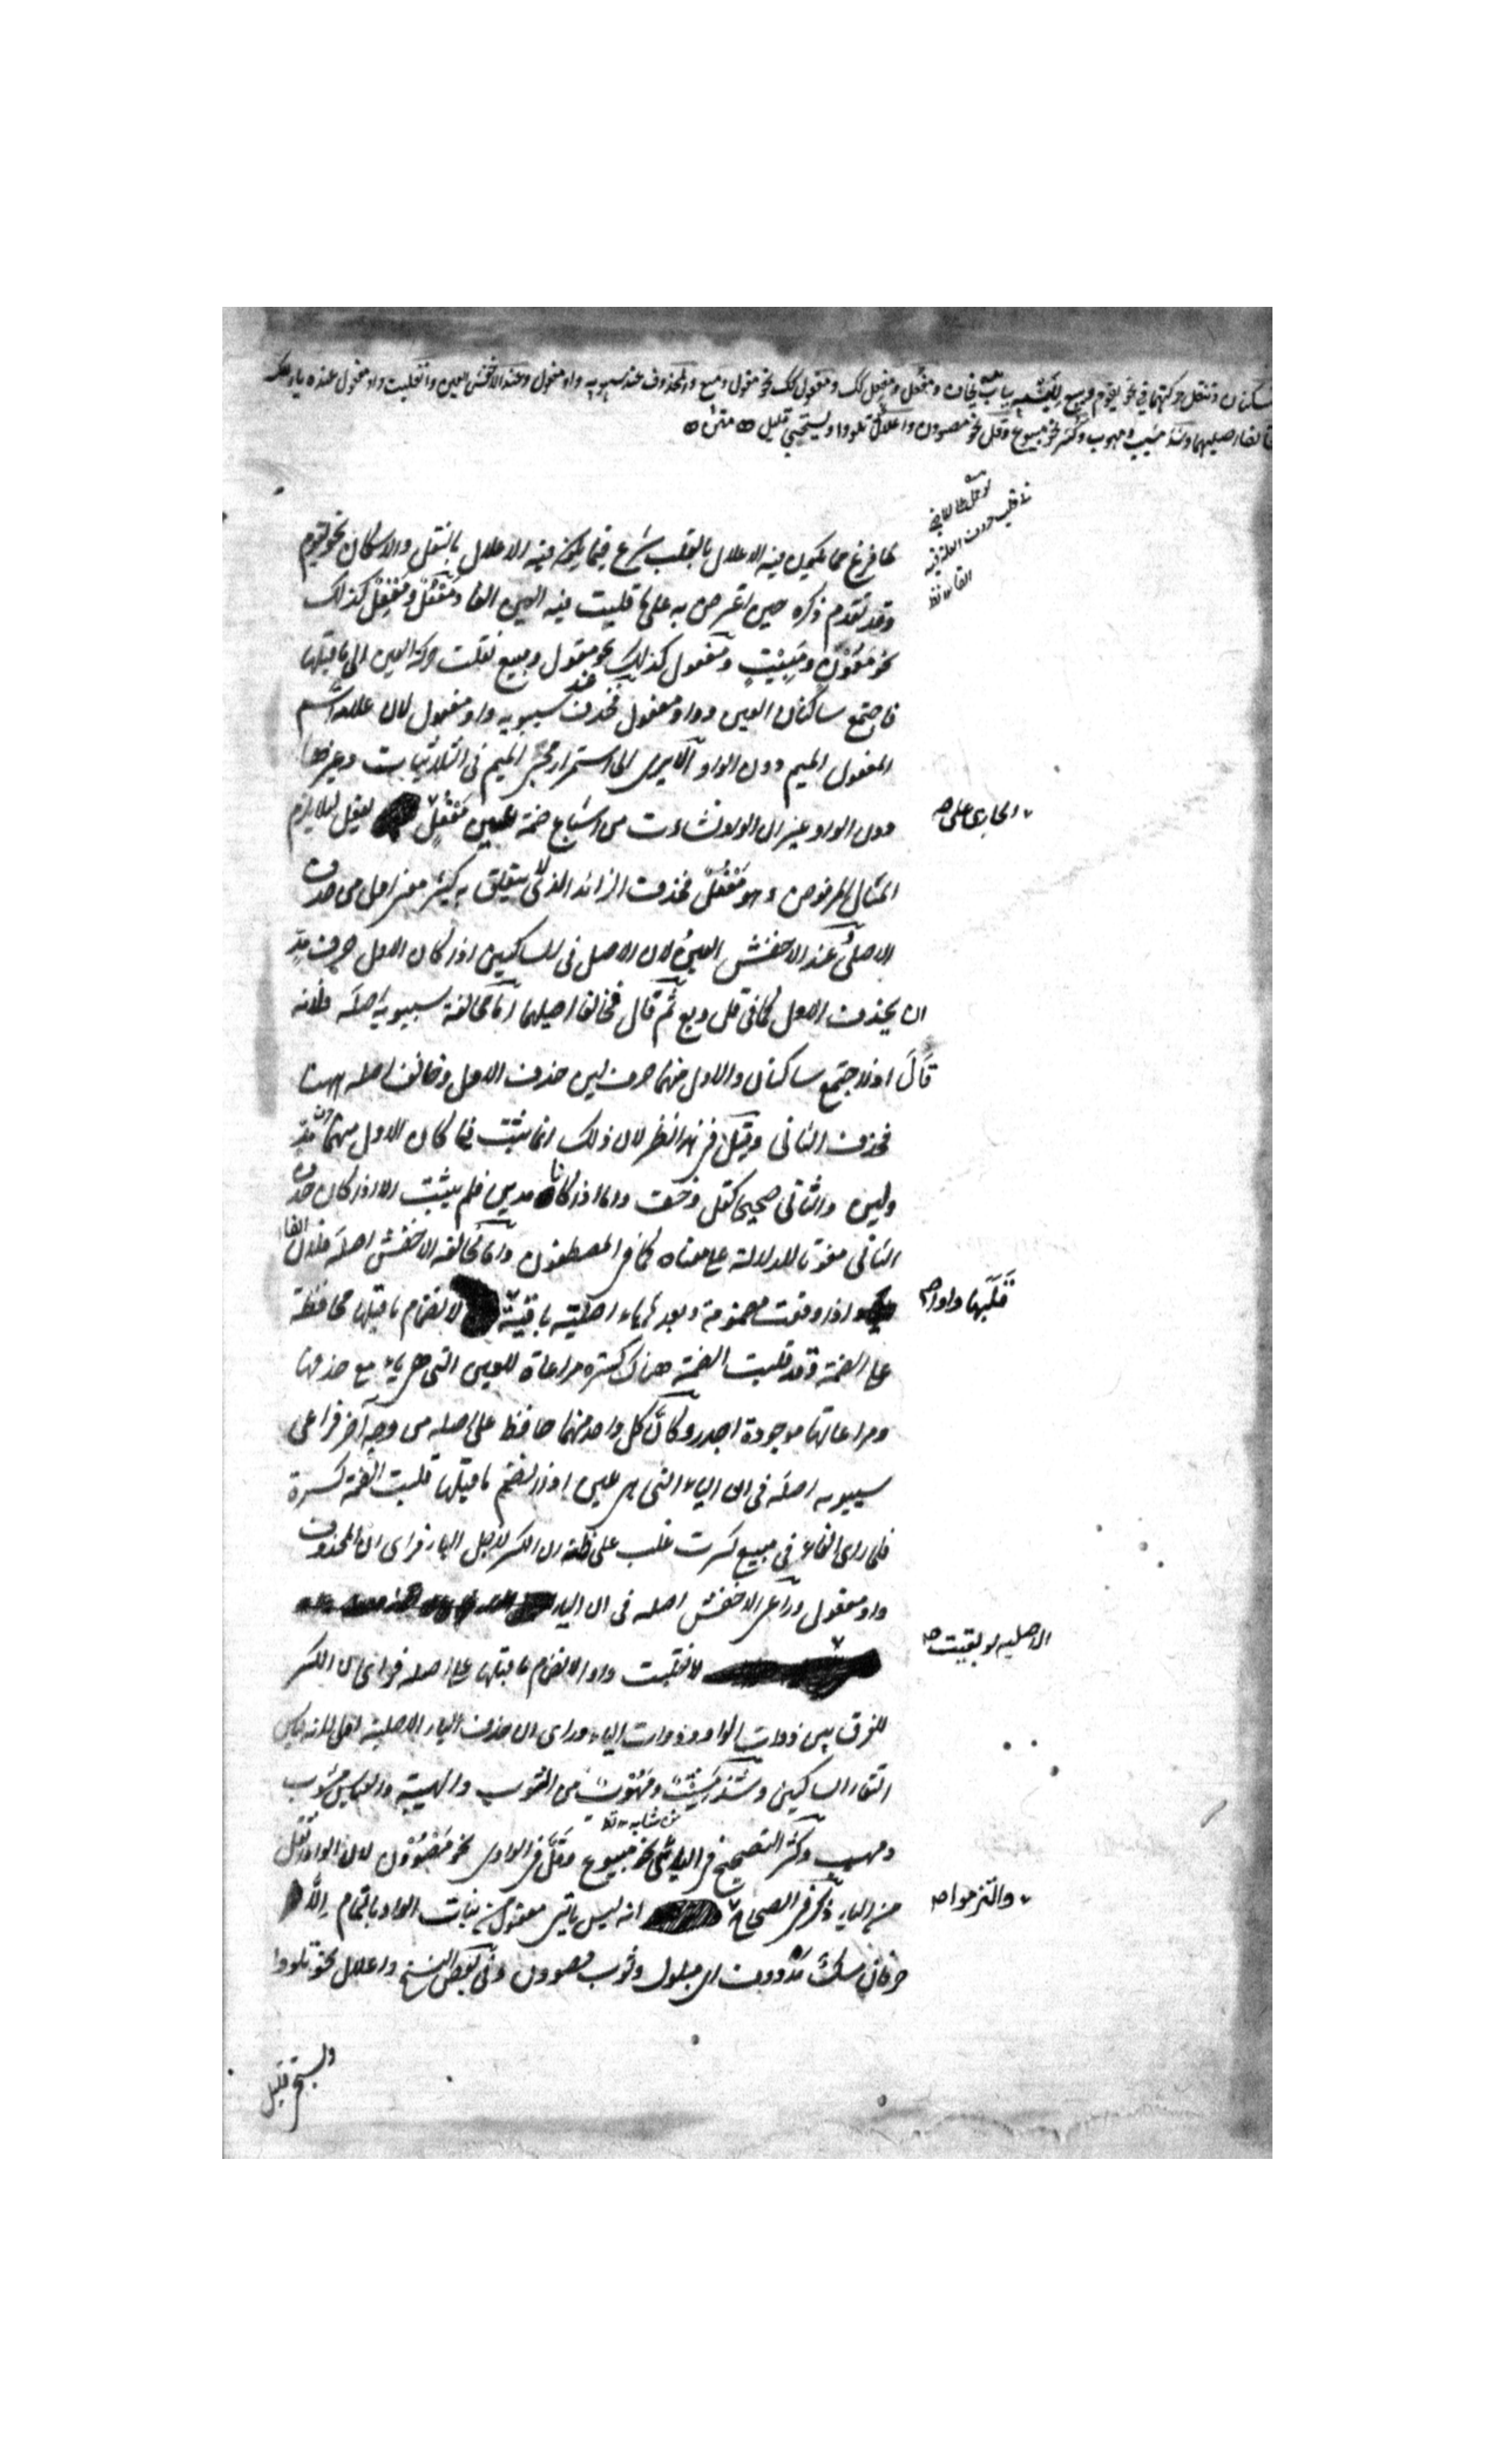 وتنقل حركتهما في نحو يقوم ويبيع للبسه بباب يخاف ومفعل ومفعل كك ومفعول كك نحو مقول ومبيع والمحذوف عند سيبويه واو مفعول وعند الاخفش العين وانقلبت واو مفعول عنده ياء
فخالفا اصليهما وشذ مشيب ومهوب وكثر نحو مبيوع وقل نحو مصوون واعلال تلووا ويستحيي قليل متن
لما فرغ مما يكون فيه الاعلال بالقلب شرع فيما يكون فيه الاعلال بالنقل والاسكان نحو يقوم
وقد تقدم ذكره حين اعترض به على ما قلبت فيه العين الفا ومفعل ومفعل كذلك
نحو معون ومبيت ومفعول كذلك نحو مقول ومبيع نقلت حركة العين الى ما قبلها
فاجتمع ساكنان العين وواو مفعول فحذف عند سيبويه واو مفعول لان علامة اسم
المفعول الميم دون الواو الا يرى الى استمرار مجيء الميم في الثلاثيات وغيرها
دون الواو غير ان الواو نشاءت من اشباع ضمة عين مفعل لئلا يلزم
الجاري على صح
المثال المرفوض وهو مفعل فحذف الزائد الذي لا يتعلق به كثير معنى اولى من حذف
الاصلي وعند الاخفش العين لان الاصل في الساكنين اذا كان الاول حرف مد
ان يحذف الاول كما في قل وبع ثم قال فخالفا اصليهما اما مخالفة سيبويه اصله فلانه
قال اذا اجتمع ساكنان والاول منهما حرف لين حذف الاول وخالف اصله ههنا
فحذف الثاني وقيل فيه نظر لان ذلك انما يثبت فيما كان الاول منهما حرف مد
ولين والثاني صحيحا كقل وخف واما اذا كانا مدين فلم يثبت الا اذا كان حذف
الثاني مفوتا للدلالة على معناه كما في المصطفون واما مخالفة الاخفش اصله فلان الفاء
اذا وقعت مضمومة وبعدها ياء اصلية باقية لانضمام ما قبلها محافظة
قلبها واوا صح
على الضمة وقد قلبت الضمة هناك كسرة مراعاة للعين التي هي ياء مع حذفها
ومراعاتها موجودة اجدر وكأن كل واحد منهما حافظ على اصله من وجه آخر فراعى
سيبويه اصله في ان الياء التي هي عين اذا انضم ما قبلها قلبت الضمة كسرة
فلما راى الفاء في مبيع كسرت غلب على ظنه ان الكسر لاجل الياء فراى ان المحذوف
واو مفعول وراعى الاخفش اصله في ان الياء
الاصلية لو بقيت صح
لانقلبت واوا لانضمام ما قبلها على اصله فراى ان الكسر
للفرق بين ذوات الواو وذوات الياء وراى ان حذف الياء الاصلية اولى
التقاء الساكنين وشذ مشيب ومهوب من الشوب والهيبة والقياس مشوب
ومهيب وكثر التصحيح في اليائي نحو مبيوع وقل في الواوي نحو مصوون لان الواو اثقل
من الياء ذكر في الصحاح انه ليس ياتي مفعول من بنات الواو بالتمام الا
والتزموا صح
حرفان مسك مدووف اي مبلول وثوب مصوون وفي بعض النسخ واعلال نحو تلووا
ويستحيي قليل